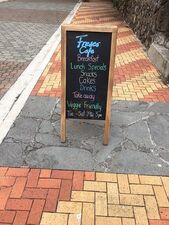 Fresco
Cafe
Breakfast
Lunch Specials
Snacks
Cakes
Drinks
Take away
Veggie Friendly
Tue - Sat